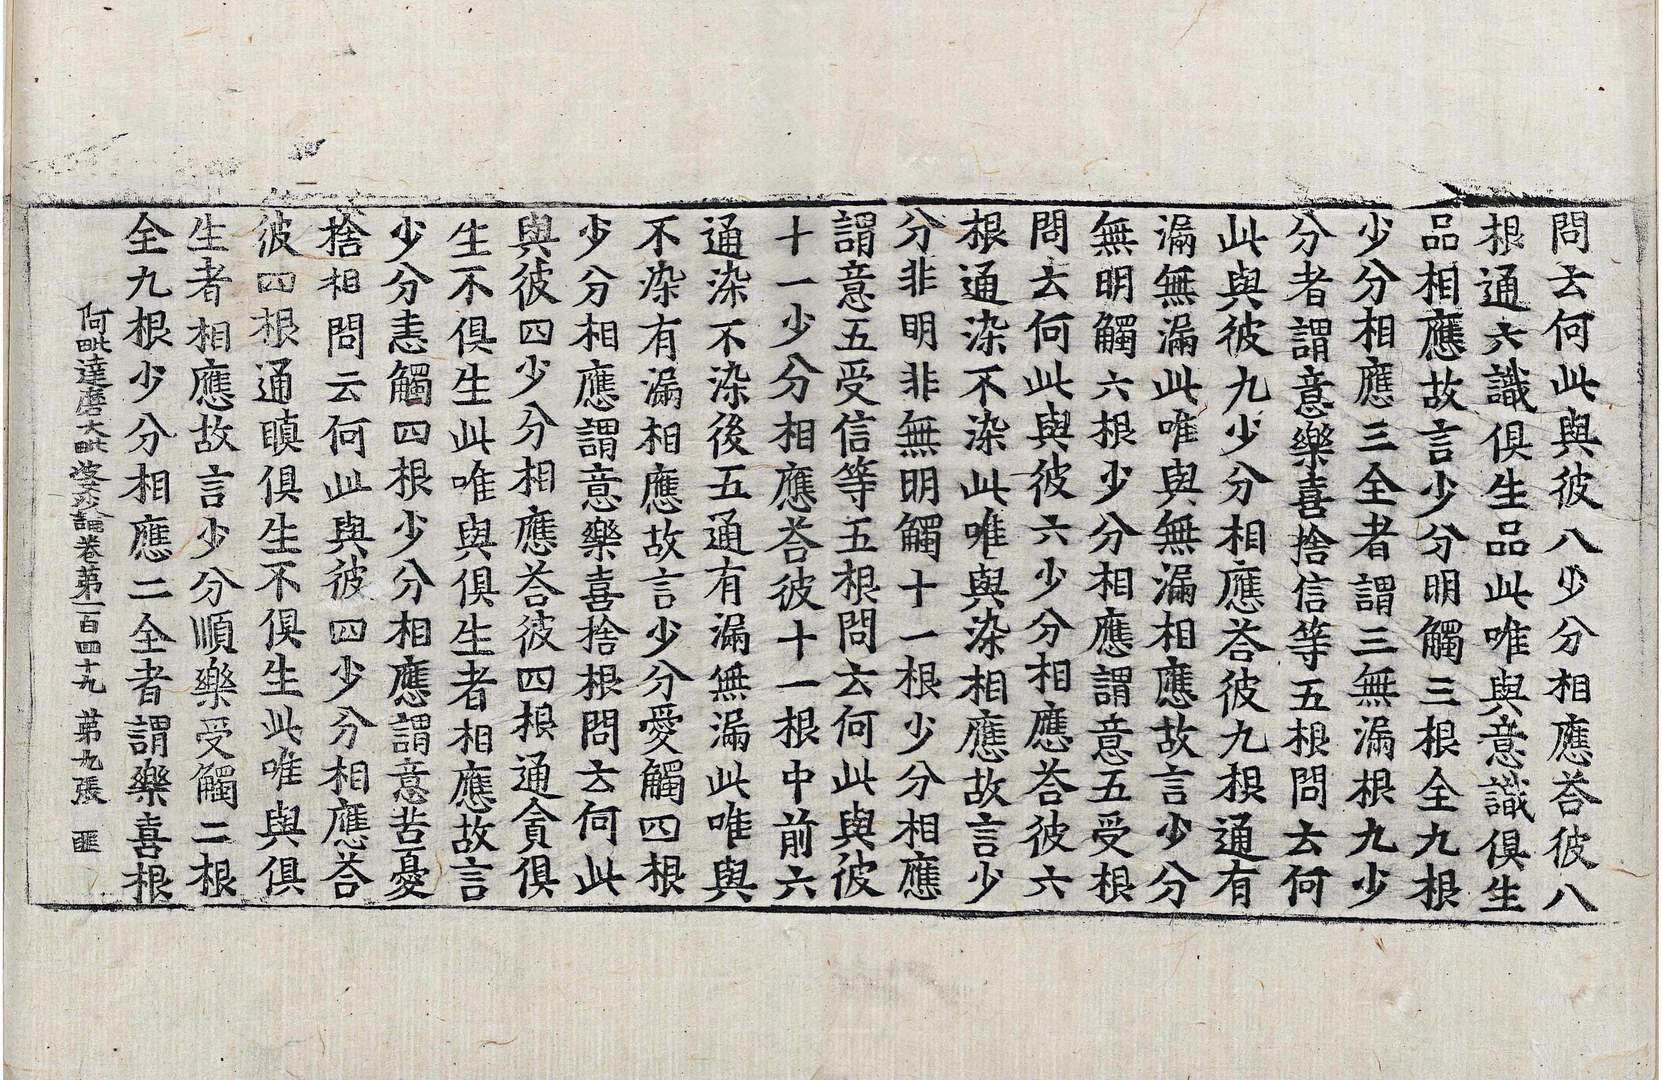 問云何此與彼八少分相應荅彼八
根通六識俱生品此唯與意識俱生
品相應故言少分明觸三根全九根
少分相應三全者謂三無漏根九少
分者謂意樂喜捨信等五根問云何
此與彼九少分相應荅彼九根通有
漏無漏此唯與無漏相應故言少分
無明觸六根少分相應謂意五受根
問云何此與彼六少分相應荅彼六
根通染不染此唯與染相應故言少
分非明非無明觸十一根少分相應
謂意五受信等五根問云何此與彼
十一少分相應荅彼十一根中前六
通染不染後五通有漏無漏此唯與
不染有漏相應故言少分愛觸四根
少分相應謂意樂喜捨根問云何此
與彼四少分相應荅彼四根通貪俱
生不俱生此唯與俱生者相應故言
少分恚觸四根少分相應謂意苦憂
捨相問云何此與彼四少分相應荅
彼四根通瞋俱生不俱生此唯與俱
生者相應故言少分順樂受觸二根
全九根少分相應二全者謂樂喜根
阿毗達磨大毗婆沙論卷第一百四十九 第九張 匪